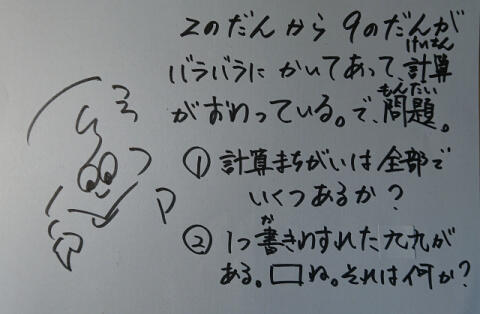 2のだんから9のだんが
バラバラにかいてあって、計算
けいさん
がおわっている。で、問題。
もんだい
① 計算まちがいは全部で
いくつあるか?
② 1つ書きわすれた九九が
か
ある。□ね。それは何か?
P